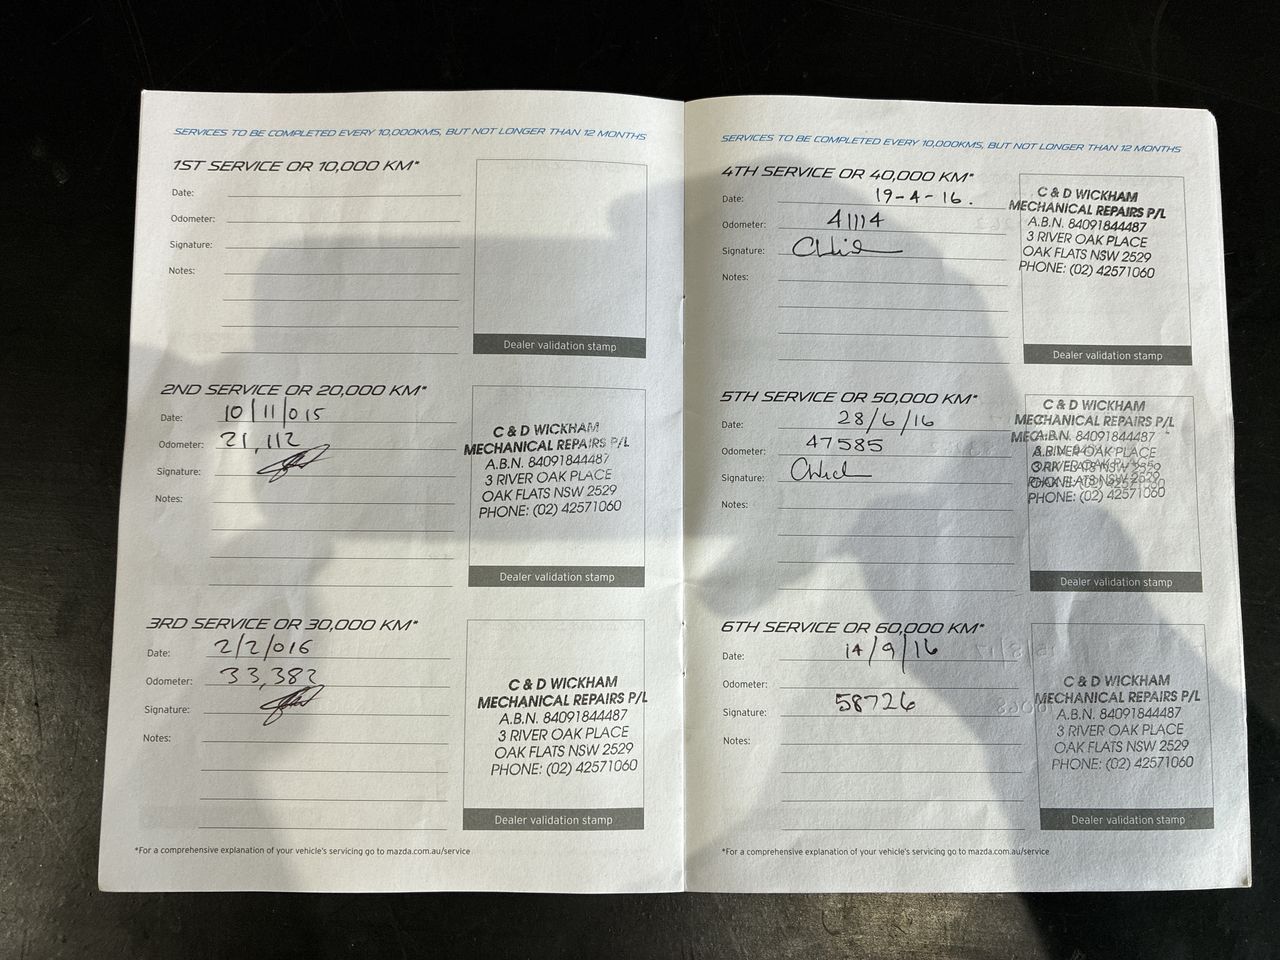 SERVICES TO BE COMPLETED EVERY 10,000KMS, BUT NOT LONGER THAN 12 MONTHS
1ST SERVICE OR 10,000 KM*
Date:
Odometer:
Signature:
Notes:
Dealer validation stamp
2ND SERVICE OR 20,000 KM*
Date: 10/11/015
Odometer: 21,112
Signature:
Notes:
C & D WICKHAM
MECHANICAL REPAIRS P/L
A.B.N. 84091844487
3 RIVER OAK PLACE
OAK FLATS NSW 2529
PHONE: (02) 42571060
Dealer validation stamp
3RD SERVICE OR 30,000 KM*
Date: 2/2/016
Odometer: 33,382
Signature:
Notes:
C & D WICKHAM
MECHANICAL REPAIRS P/L
A.B.N. 84091844487
3 RIVER OAK PLACE
OAK FLATS NSW 2529
PHONE: (02) 42571060
Dealer validation stamp
*For a comprehensive explanation of your vehicle's servicing go to mazda.com.au/service
SERVICES TO BE COMPLETED EVERY 10,000KMS, BUT NOT LONGER THAN 12 MONTHS
4TH SERVICE OR 40,000 KM*
Date: 19-4-16.
Odometer: 41114
Signature:
Notes:
C & D WICKHAM
MECHANICAL REPAIRS P/L
A.B.N. 84091844487
3 RIVER OAK PLACE
OAK FLATS NSW 2529
PHONE: (02) 42571060
Dealer validation stamp
5TH SERVICE OR 50,000 KM*
Date: 28/6/16
Odometer: 47585
Signature:
Notes:
C & D WICKHAM
MECHANICAL REPAIRS P/L
A.B.N. 84091844487
RIVER OAK PLACE
PHONE: (02) 42571060
Dealer validation stamp
6TH SERVICE OR 60,000 KM*
Date: 14/9/16
Odometer:
Signature: 58726
Notes:
C & D WICKHAM
MECHANICAL REPAIRS P/L
A.B.N. 84091844487
3 RIVER OAK PLACE
OAK FLATS NSW 2529
PHONE: (02) 42571060
Dealer validation stamp
*For a comprehensive explanation of your vehicle's servicing go to mazda.com.au/service